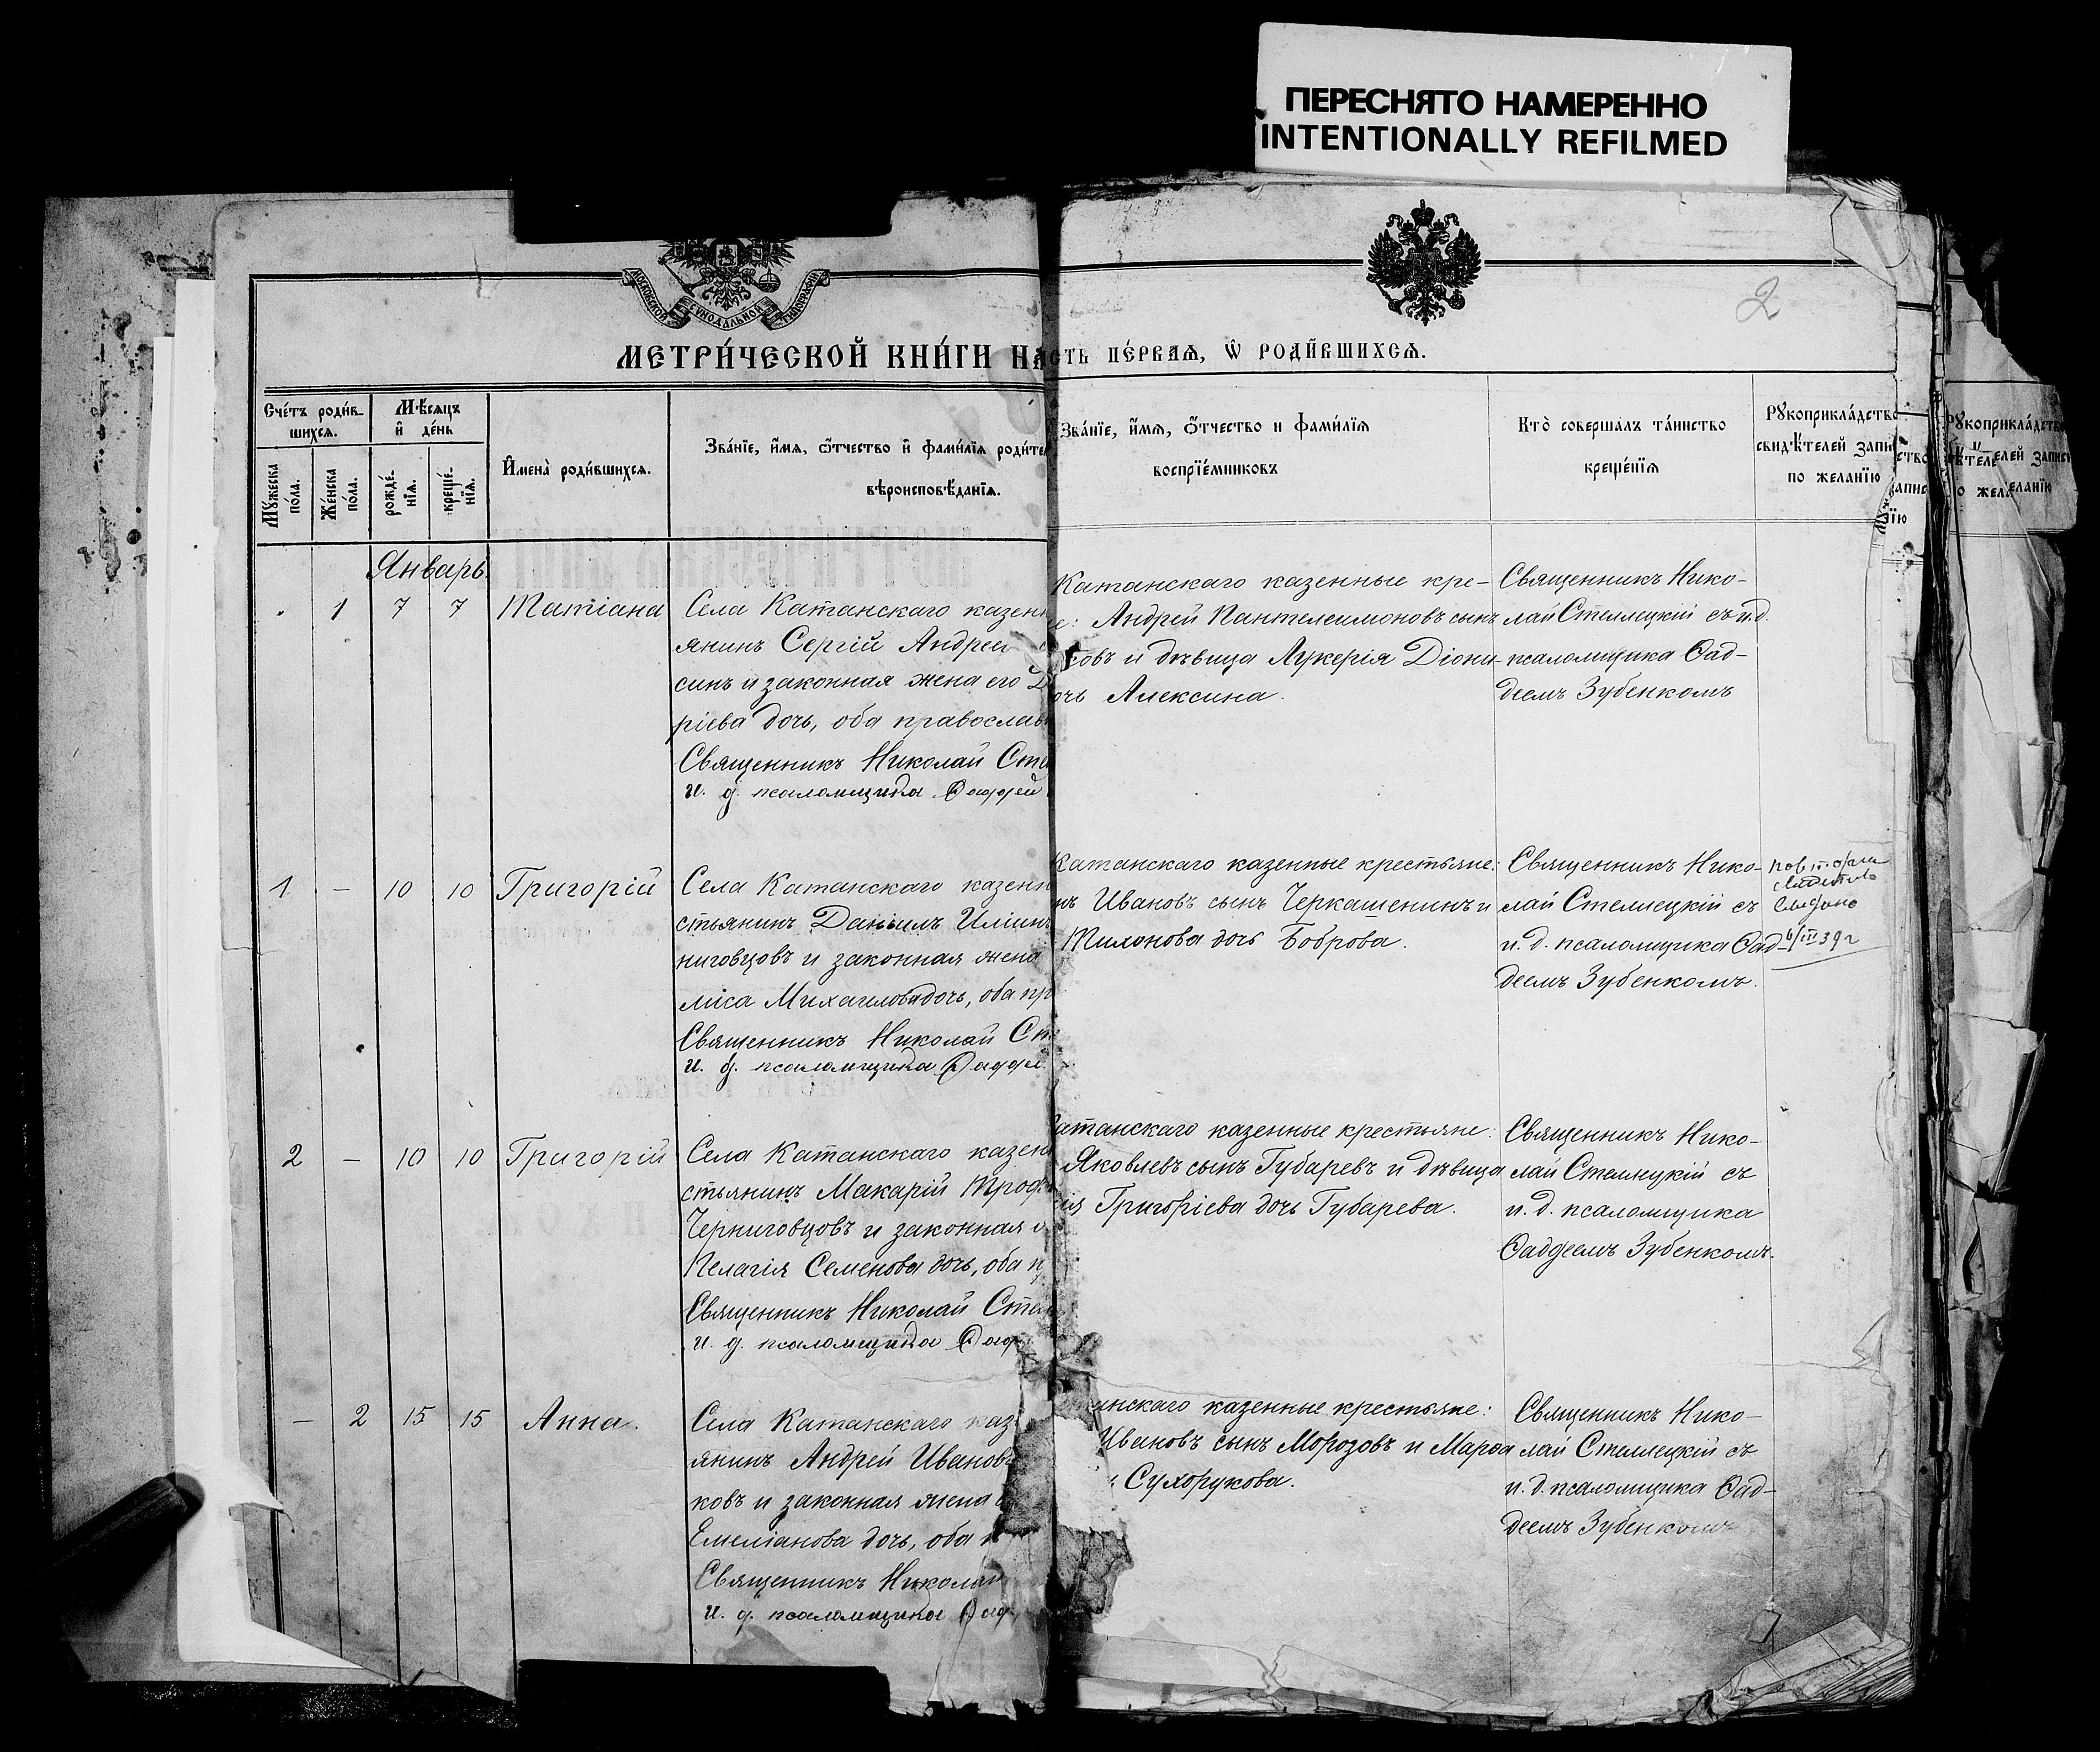 ПЕРЕСНЯТО НАМЕРЕННО
INTENTIONALLY REFILMED
МОСКОВСКОЙ СѴНОДАЛЬНОЙ ТИПОГРАФІИ
2
МЕТРИ́ЧЕСКОЙ КНИ́ГИ ЧАСТЬ ПЕ́РВАѦ, Ѡ҆ РОДИ́ВШИХСѦ.
Сче́тъ роди́в-
шихсѧ.
Мꙋ́жеска
по́ла.
Же́нска
по́ла.
Мѣ́сѧцъ
и҆ де́нь
рожде́-
нїѧ.
креще́-
нїѧ.
И҆мена̀ роди́вшихсѧ.
Зва́нїе, и҆́мѧ, ѻ҆́тчество и҆ фами́лїѧ роди́те
вѣроисповѣ́данїѧ.
Зва́нїе, и҆́мѧ, ѻ҆́тчество и фами́лїѧ
воспрїе́мниковъ
Кто̀ соверша́лъ та́инство
креще́нїѧ
Рꙋкоприкла́дство
свидѣ́телей запи
по желанїю
Январь
1 7 7 Татіана
Села Катанскаго казен
янинъ Сергій Андрее
синъ и законная жена его
ріева дочь, оба православ
Священникъ Николай Сте
и. д. псаломщика Фаддей
Катанскаго казенные кре-
е: Андрей Пантелеимоновъ сынъ
ковъ и дѣвица Лукерія Діони-
очь Алексина.
Священникъ Нико-
лай Стеллецкій съ и.д.
псаломщика Фад-
деемъ Зубенкомъ
1 — 10 10 Григорій
Села Катанскаго казенн
стьянинъ Даніилъ Иліинъ
ниговцовъ и законная жена
лиса Михаилова дочь, оба пр
Священникъ Николай Сте
и. д. псаломщика Фадде
Катанскаго казенные крестьяне:
нъ Ивановъ сынъ Черкашенинъ и
Тихонова дочь Боброва.
Священникъ Нико-
лай Стеллецкій съ
и. д. псаломщика Фад-
деемъ Зубенкомъ.
6/III 39 г
2 — 10 10 Григорій
Села Катанскаго казен
стьянинъ Макарій Трофи
Черниговцовъ и законная
Пелагія Семенова дочь, оба п
Священникъ Николай Стел
и. д. псаломщика Фад
Катанскаго казенные крестьяне:
Яковлевъ сынъ Губаревъ и дѣвица
сія Григоріева дочь Губарева.
Священникъ Нико-
лай Стеллецкій съ
и. д. псаломщика
Фаддеемъ Зубенкомъ.
— 2 15 15 Анна.
Села Катанскаго каз
янинъ Андрей Ивановъ
ковъ и законная жена
Емеліанова дочь, оба
Священникъ Николай
и. д. псаломщика Фад
анскаго казенные крестьяне:
Ивановъ сынъ Морозовъ и Марѳа
Сухорукова.
Священникъ Нико-
лай Стеллецкій съ
и. д. псаломщика Фад-
деемъ Зубенкомъ